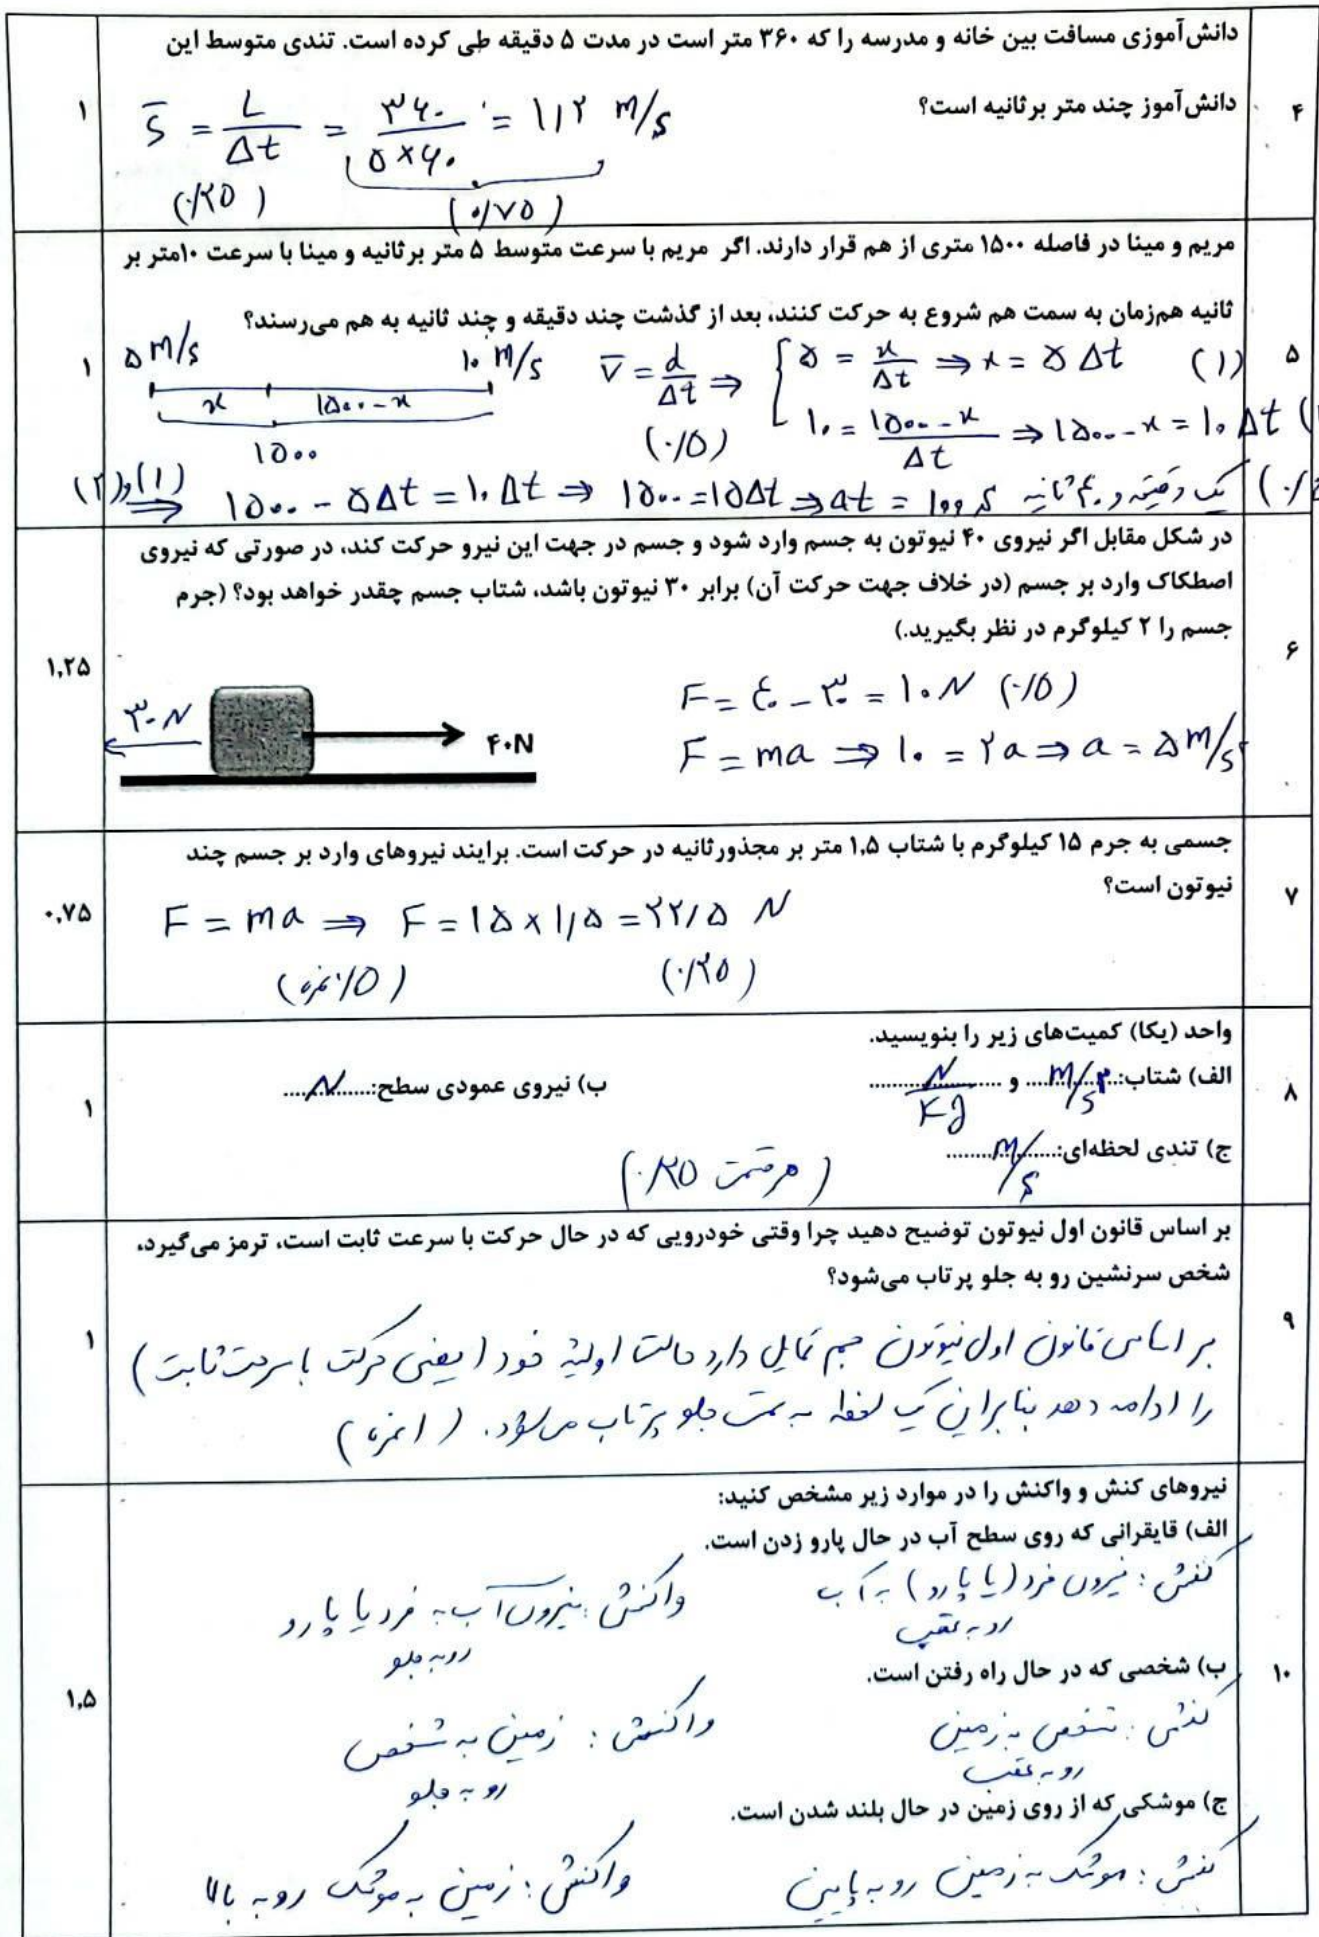 دانش‌آموزی مسافت بین خانه و مدرسه را که ۳۶۰ متر است در مدت ۵ دقیقه طی کرده است. تندی متوسط این
۴
دانش‌آموز چند متر برثانیه است؟
۱
S̄ = L/Δt = ۳۶۰/(۵×۶۰) = ۱/۲ m/s
(۰/۲۵)
(۰/۷۵)
مریم و مینا در فاصله ۱۵۰۰ متری از هم قرار دارند. اگر مریم با سرعت متوسط ۵ متر برثانیه و مینا با سرعت ۱۰متر بر
ثانیه هم‌زمان به سمت هم شروع به حرکت کنند، بعد از گذشت چند دقیقه و چند ثانیه به هم می‌رسند؟
۵
۱
۵ m/s ۱۰ m/s V̄ = d/Δt ⇒ ۵ = x/Δt ⇒ x = ۵ Δt (۱)
x ۱۵۰۰-x
۱۵۰۰ (۰/۵) ۱۰ = (۱۵۰۰-x)/Δt ⇒ ۱۵۰۰-x = ۱۰ Δt
(۱)و(۲) ⇒ ۱۵۰۰ - ۵Δt = ۱۰Δt ⇒ ۱۵۰۰ = ۱۵Δt ⇒ Δt = ۱۰۰ s یک دقیقه و ۴۰ ثانیه
در شکل مقابل اگر نیروی ۴۰ نیوتون به جسم وارد شود و جسم در جهت این نیرو حرکت کند، در صورتی که نیروی
اصطکاک وارد بر جسم (در خلاف جهت حرکت آن) برابر ۳۰ نیوتون باشد، شتاب جسم چقدر خواهد بود؟ (جرم
جسم را ۲ کیلوگرم در نظر بگیرید.)
۶
۱,۲۵
F = ۴۰ - ۳۰ = ۱۰ N (۰/۵)
۳۰ N
۴۰N
F = ma ⇒ ۱۰ = ۲a ⇒ a = ۵ m/s
جسمی به جرم ۱۵ کیلوگرم با شتاب ۱,۵ متر بر مجذورثانیه در حرکت است. برایند نیروهای وارد بر جسم چند
نیوتون است؟
۷
۰,۷۵
F = ma ⇒ F = ۱۵ × ۱/۵ = ۲۲/۵ N
(۰/۵ نمره) (۰/۲۵)
واحد (یکا) کمیت‌های زیر را بنویسید.
الف) شتاب:.... m/s² .... و .... N/Kg ....
ب) نیروی عمودی سطح:.... N ....
۸
۱
ج) تندی لحظه‌ای:.... m/s ....
(هر قسمت ۰/۲۵)
بر اساس قانون اول نیوتون توضیح دهید چرا وقتی خودرویی که در حال حرکت با سرعت ثابت است، ترمز می‌گیرد،
شخص سرنشین رو به جلو پرتاب می‌شود؟
۹
۱
بر اساس قانون اول نیوتون جسم تمایل دارد حالت اولیه خود (یعنی حرکت با سرعت ثابت)
را ادامه دهد بنابراین یک لحظه به سمت جلو پرتاب می‌شود. (۱ نمره)
نیروهای کنش و واکنش را در موارد زیر مشخص کنید:
الف) قایقرانی که روی سطح آب در حال پارو زدن است.
کنش : نیروی فرد (یا پارو) به آب
رو به عقب
واکنش : نیروی آب به فرد یا پارو
رو به جلو
ب) شخصی که در حال راه رفتن است.
۱۰
۱,۵
کنش : شخص به زمین
رو به عقب
واکنش : زمین به شخص
رو به جلو
ج) موشکی که از روی زمین در حال بلند شدن است.
کنش : موشک به زمین رو به پایین
واکنش : زمین به موشک رو به بالا